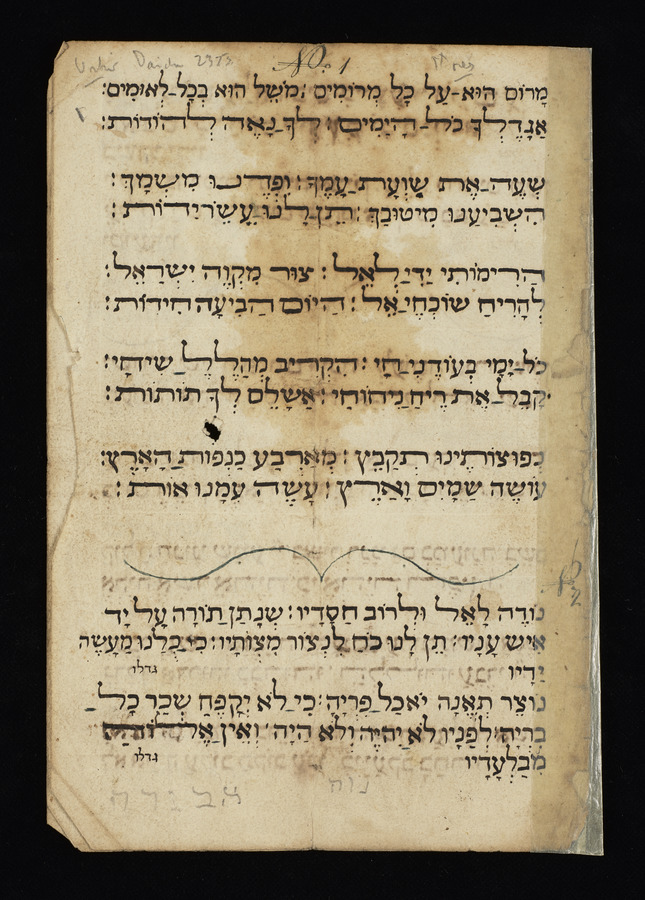 No. 1
מָרוֹם הוּא-עַל כָּל מְרוֹמִים : מֹשֵׁל הוּא בְּכָל-לְאוּמִים:
אַגָדֶלְךָ כֹל-הַיָמִים : לְךָ-נָאֶה לְהוֹדוֹת:
שְׁעֵה-אֶת שַׁוְעַת-עַמֶךָ : וּפְדֵנוּ מִשְׁמָךְ :
הִשְׂבִּיעֵנוּ מִיטוּבַךְ : תֵן-לָנוּ עֶשֶׂר יְדוֹת :
הֲרִימוֹתִי יָדִי-לָאֵל : צוּר מִקְוֵה יִשְׂרָאֵל :
לְהָרִיחַ שׁוֹכְחֵי-אֵל : הַיּוֹם הַבִּיעָה חִידוֹת :
כֹּל-יְמֵי בְּעוֹדֶנִי-חָי : הִקְרִיב מְהַלֵל-שִׂיחָי :
קַבֵּל-אֶת רֵיחַ-נִיחוֹחַי : אֲשַׁלֵם לְךָ תוֹדוֹת :
נְפוּצוֹתֵינוּ תְקַבֵּץ : מֵאַרְבַּע כַּנְפוֹת-הָאָרֶץ:
עוֹשֶׂה שָׁמַיִם וָאָרֶץ : עֲשֵׂה עִמָנוּ אוֹת :
נוֹדֶה לָאֵל וּלְרוֹב חַסָדָיו : שֶׁנָתַן-תּוֹרָה עַל יַד
אִישׁ עָנָיו : תֵּן לָנוּ כֹּחַ לִנְצוֹר מִצְוֹתָיו : כִּי-כֻלָנוּ מַעֲשֵׂה
יָדָיו
גדלו
נוֹצֵר תְּאֵנָה יֹאכַל-פִּרְיָהּ : כִּי-לֹא יְקַפֵּחַ שְׂכַר כָּל-
בְּרִיָה : לְפָנָיו לֹא יִהְיֶה וְלֹא הָיָה : וְאֵין אֱלֹהִים
מִבַּלְעָדָיו
גדלו